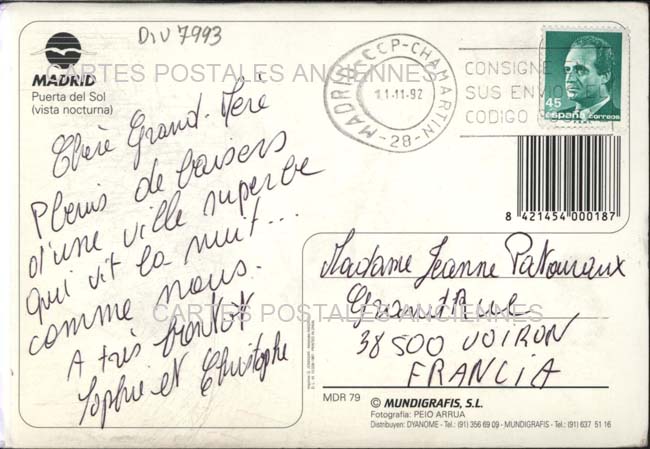 DIV 7993
MADRID
Puerta del Sol
(vista nocturna)
CARTES POSTALES ANCIENNES
MADRID CCP-CHAMARTIN
11-11-92
-28-
CONSIGNE
SUS ENVIO
CODIGO
45
españa correos
8 421454 000187
Chère Grand-Mère
Pleins de baisers
d'une ville superbe
qui vit la nuit...
comme nous.
A très bientôt
Sophie et Christophe
Madame Jeanne
Grand Rue
38500 VOIRON
FRANCIA
CARTES POSTALES ANCIENNES
MDR 79
© MUNDIGRAFIS, S.L.
Fotografía: PEIO ARRUA
Distribuyen: DYANOME - Tel.: (91) 356 69 09 - MUNDIGRAFIS - Tel.: (91) 637 51 16